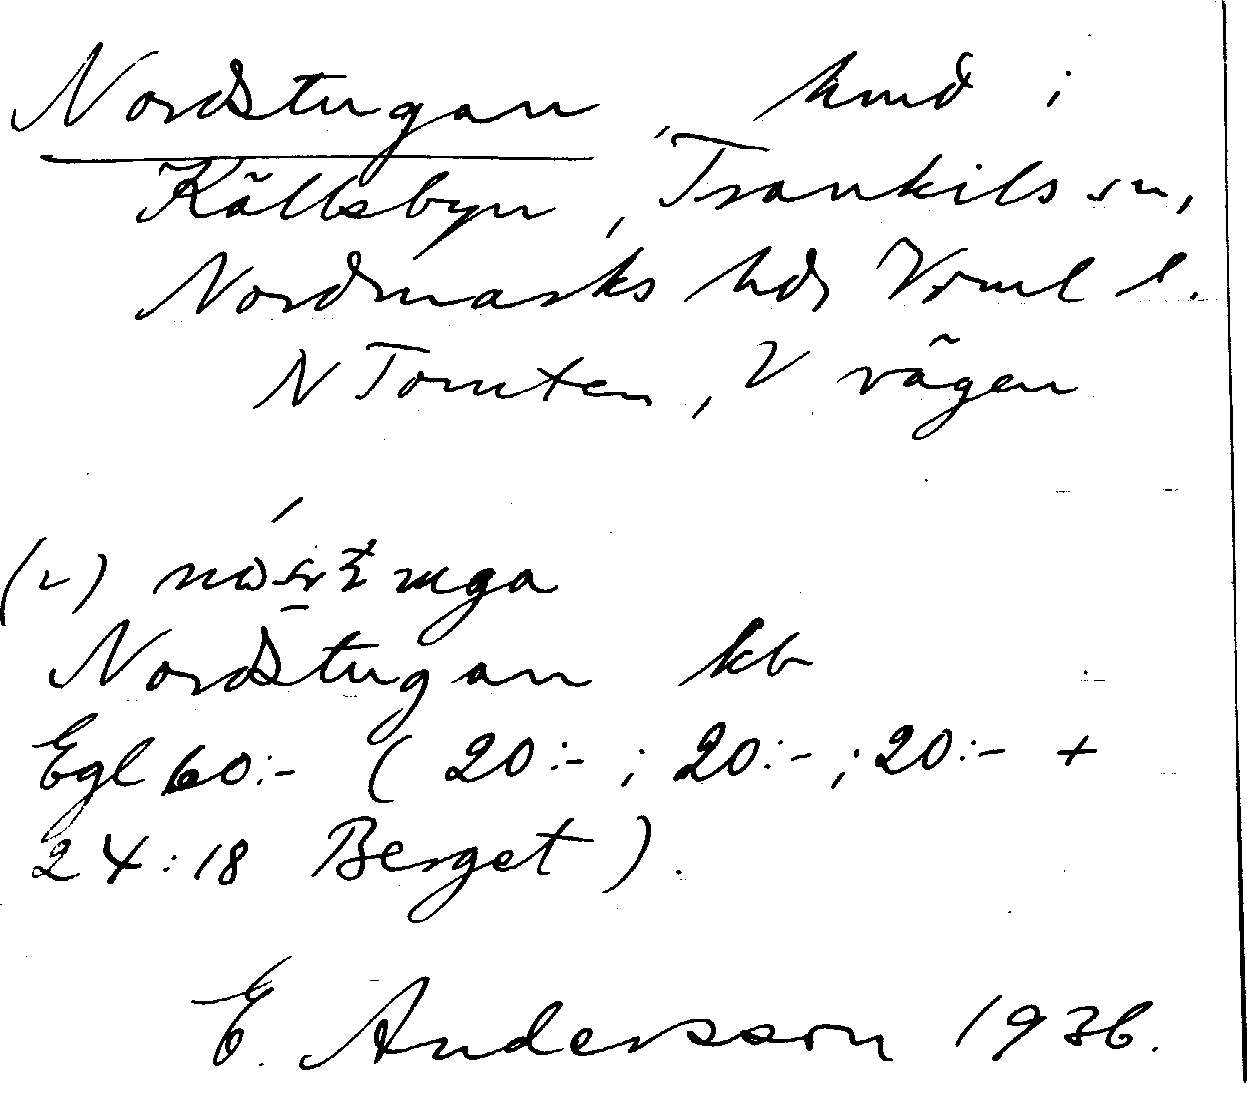 Nordstugan, hmd i
Källsbyn, Trankils sn,
Nordmarks hds Vrml l.
N Tomten, V vägen
Nordstugan kb
Egl 60:- (20:-; 20:-; 20:- +
24:18 Berget).
E. Andersson 1936.